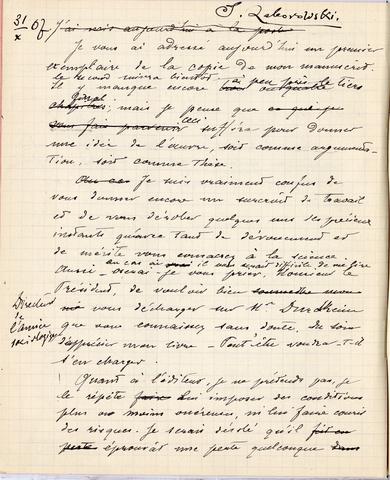 S. Zaborowski.
31/X 07. J'ai mis aujourd'hui à la poste
Je vous ai adressé aujourd'hui un premier
exemplaire de la copie de mon manuscrit.
le second suivra bientôt.
Il y manque encore à peu près le tiers
final, mais je pense que ce que je
vous fais parvenir ceci suffira pour donner
une idée de l'œuvre, soit comme argumenta-
tion, soit comme thèse.
Je suis vraiment confus de
vous donner encore un surcroît de travail
et de vous dérober quelques uns des précieux
instants qu'avec tant de dévouement et
de mérite vous consacrez à la science.
Aussi au cas où il vous serait difficile de me lire
oserai-je vous prier, Monsieur le
Président, de vouloir bien soumettre mon
vous décharger sur Mr Durkheim
Directeur de l'année sociologique
que vous connaissez sans doute, du soin
d'apprécier mon livre - Peut être voudra-t-il
s'en charger.
Quant à l'éditeur, je ne prétends pas, je
le répète faire lui imposer des conditions
plus ou moins onéreuses, ni lui faire courir
des risques. Je serais désolé qu'il fit en
perte éprouvât une perte quelconque dans